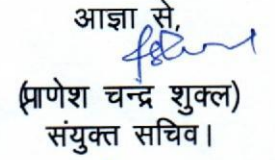 आज्ञा से,
(प्राणेश चन्द्र शुक्ल)
संयुक्त सचिव।